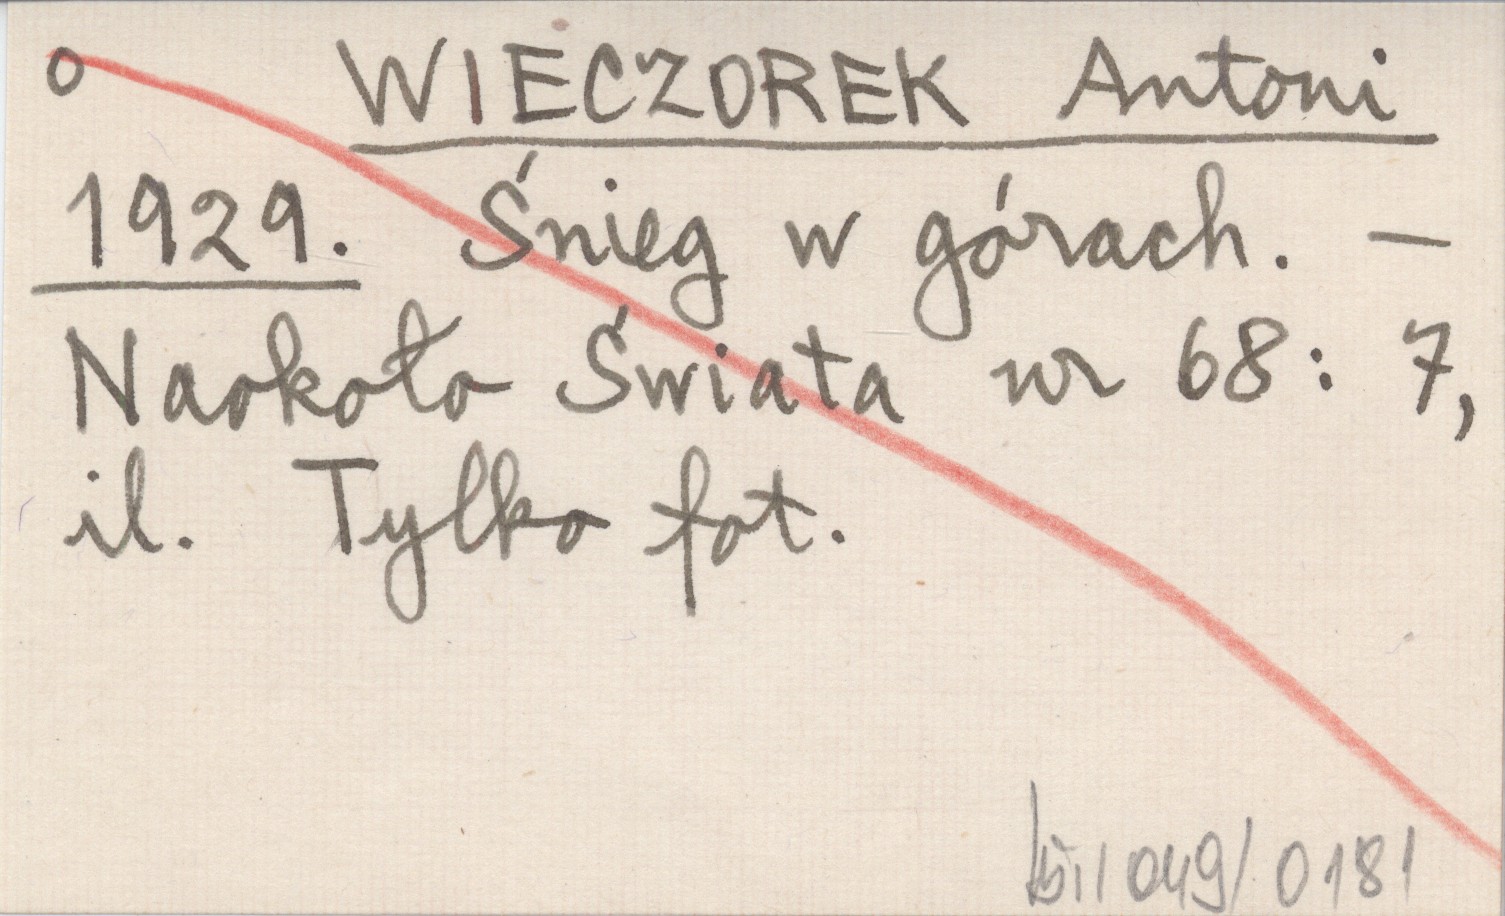 o WIECZOREK Antoni
1929. Śnieg w górach. –
Naokoło Świata nr 68: 7,
il. Tylko fot.
049/0181